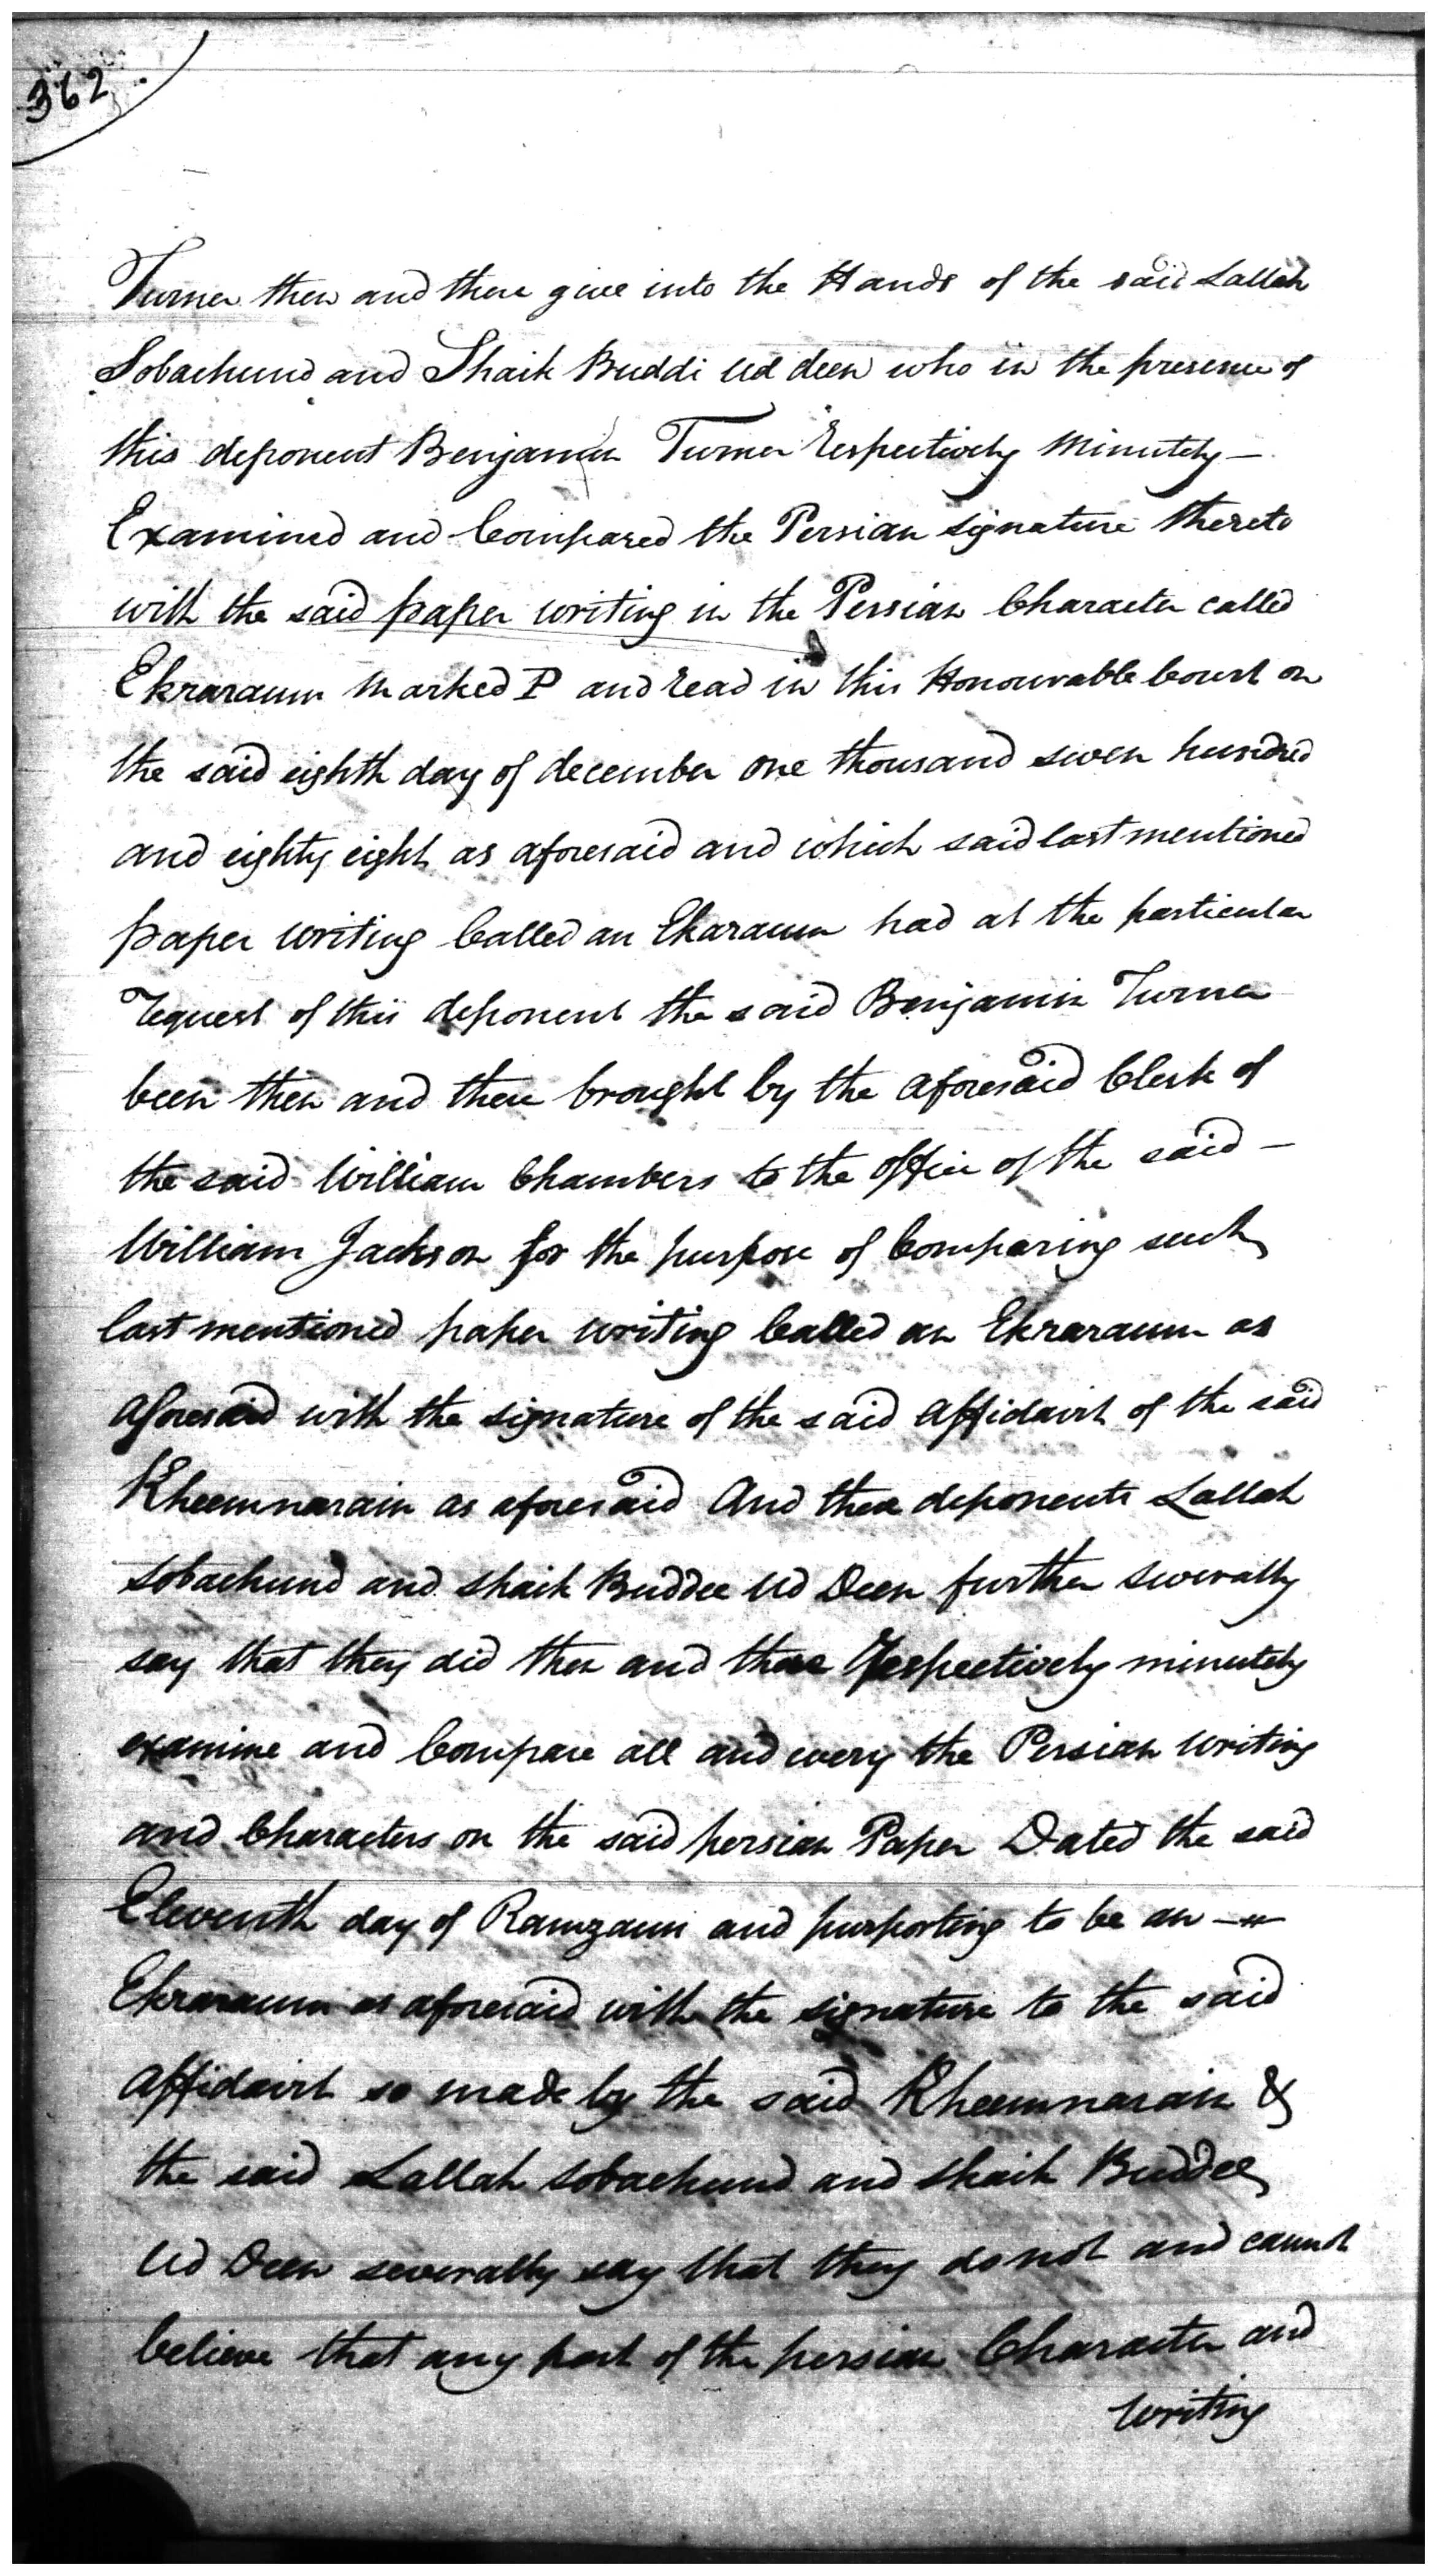 362
Turner then and there give into the Hands of the said Lallah
Sobachund and Shaik Buddi Ud deen who in the presence of
this deponent Benjamin Turner respectively Minutely —
Examined and Compared the Persian signature thereto
with the said paper writing in the Persian Character called
Ekraraum marked P and read in this Honourable Court on
the said eighth day of december one thousand seven hundred
and eighty eight as aforesaid and which said last mentioned
paper writing Called an Ekaraum had at the particular
request of this deponent the said Benjamin Turner
been then and there brought by the aforesaid Clerk of
the said William Chambers to the office of the said —
William Jackson for the purpose of Comparing such
last mentioned paper writing Called an Ekraraum as
aforesaid with the signature of the said affidavit of the said
Kheemnarain as aforesaid And these deponents Lallah
Sobachund and Shaik Buddee Ud Deen further severally
say that they did then and there respectively minutely
examine and Compare all and every the Persian writing
and Characters on the said persian Paper Dated the said
Eleventh day of Ramzaun and purporting to be an —
Ekraraum as aforesaid with the signature to the said
affidavit so made by the said Kheemnarain &
the said Lallah Sobachund and Shaik Buddee
Ud Deen severally say that they do not and cannot
believe that any part of the persian Character and
writing